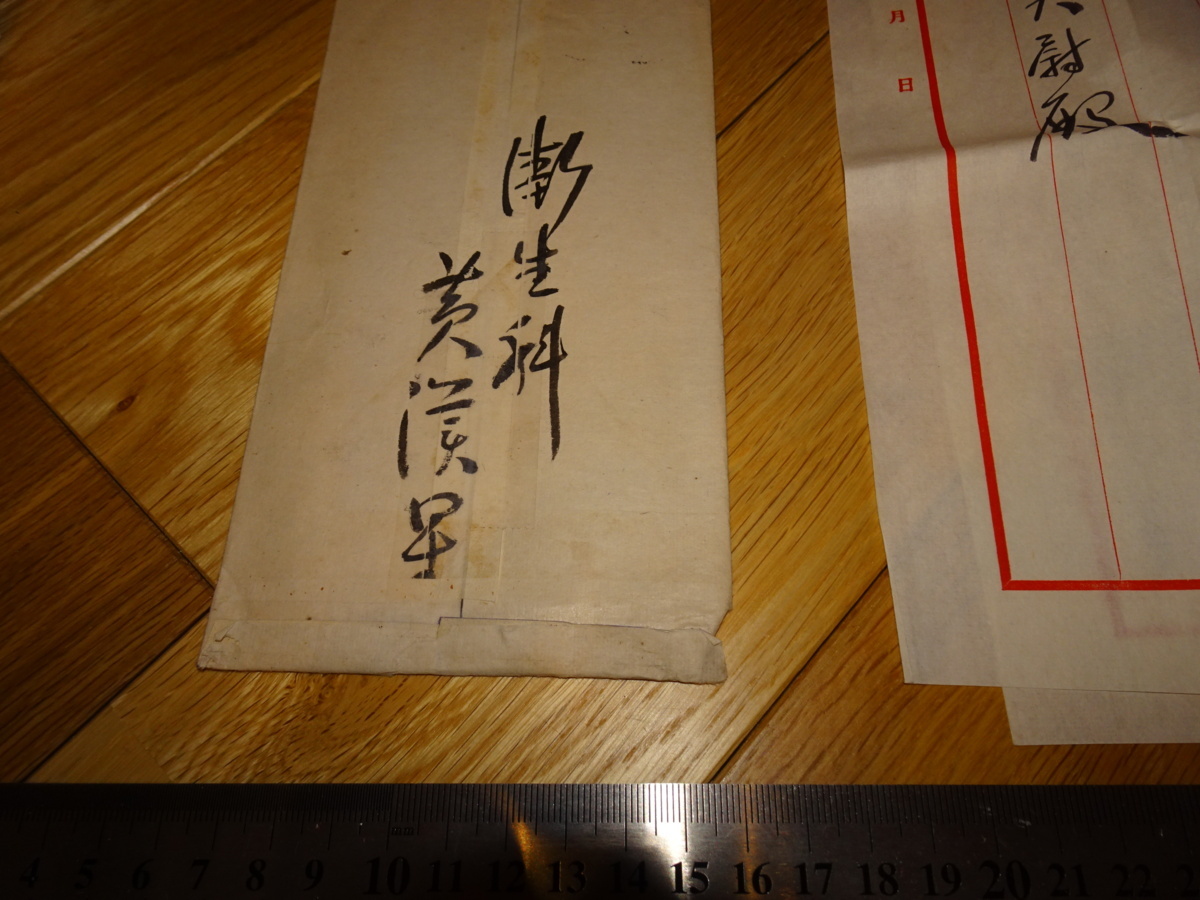 大尉殿
月 日
衛生科
黄漢
mm
4 5 6 7 8 9 10 11 12 13 14 15 16 17 18 19 20 21 22